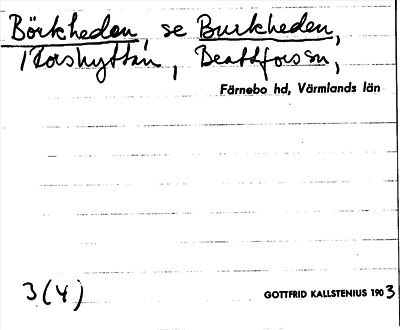 Börkheden, se Burkheden,
Torshyttan, Beattforssn,
Färnebo hd, Värmlands län
3(4)
GOTTFRID KALLSTENIUS 1903